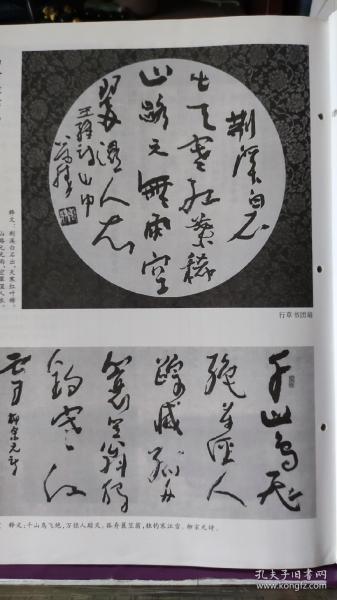 荆溪白石
出天寒红葉稀
山路元無雨空
翠湿人衣
王维诗山中
释文:荆溪白石出,天寒红叶稀。
山路元无雨,空翠湿人衣。
行草书团扇
千山鸟飞
绝万径人
踪滅孤舟
蓑笠翁独
钓寒江
雪 柳宗元诗
释文:千山鸟飞绝,万径人踪灭。孤舟蓑笠翁,独钓寒江雪。柳宗元诗。
孔夫子旧书网